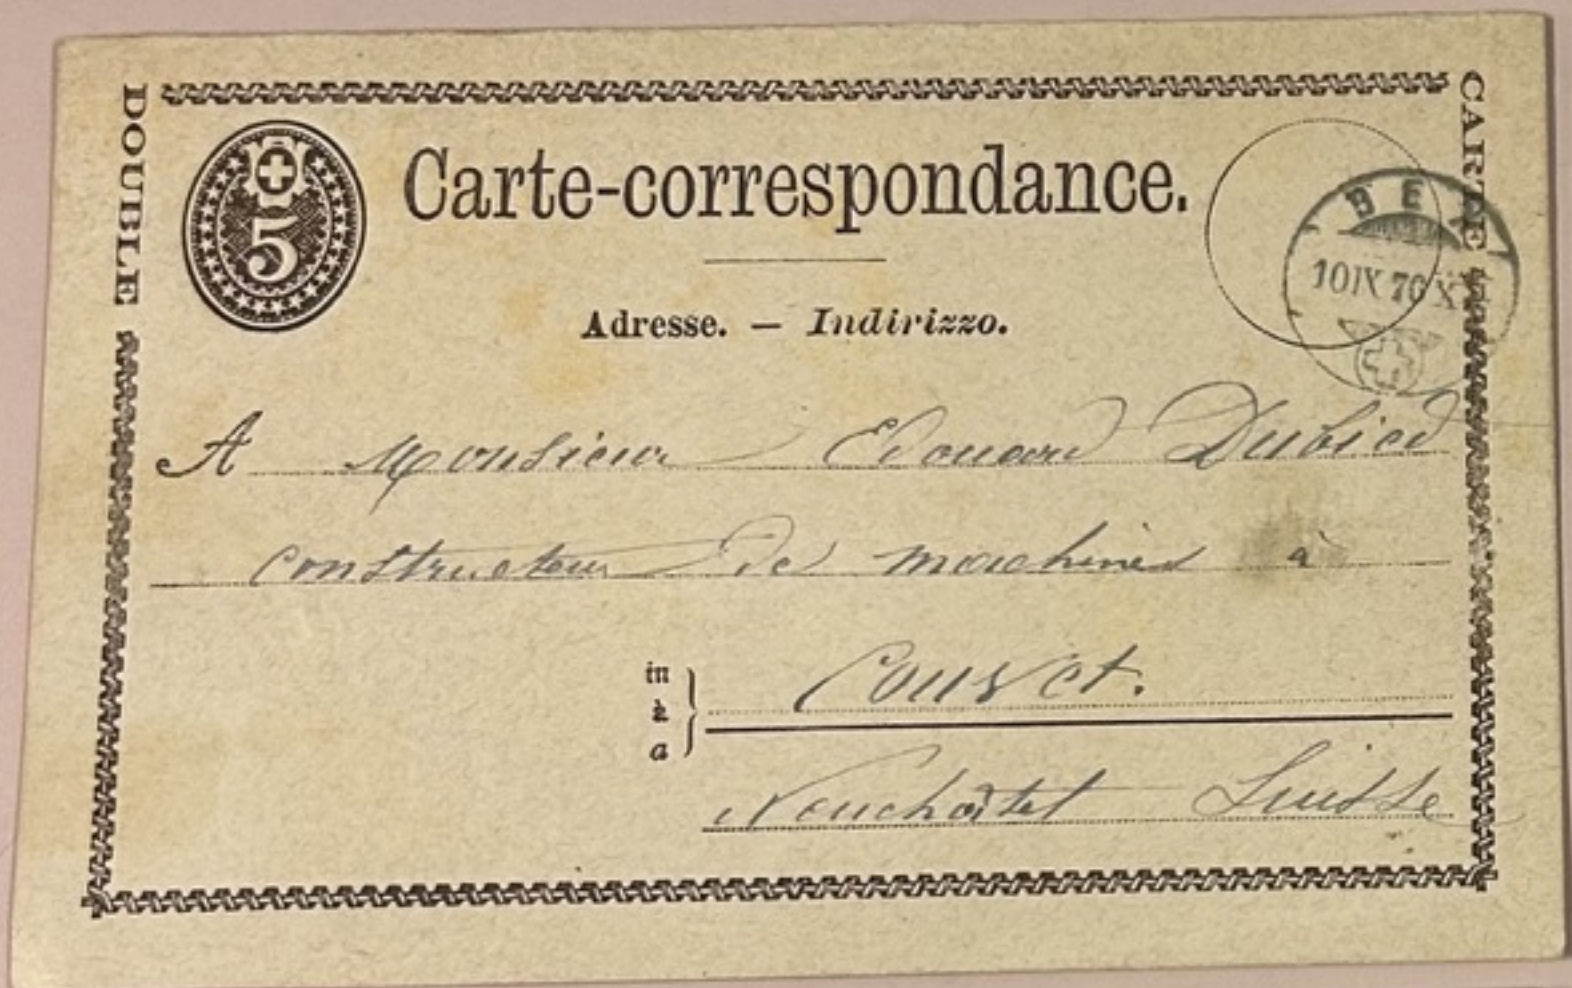 DOUBLE
CARTE
5
Carte-correspondance.
BEX
10 IX 76 X
Adresse. — Indirizzo.
A Monsieur Edouard Dubied
constructeur de machines à
in
à
a
Couvet.
Neuchâtel Suisse